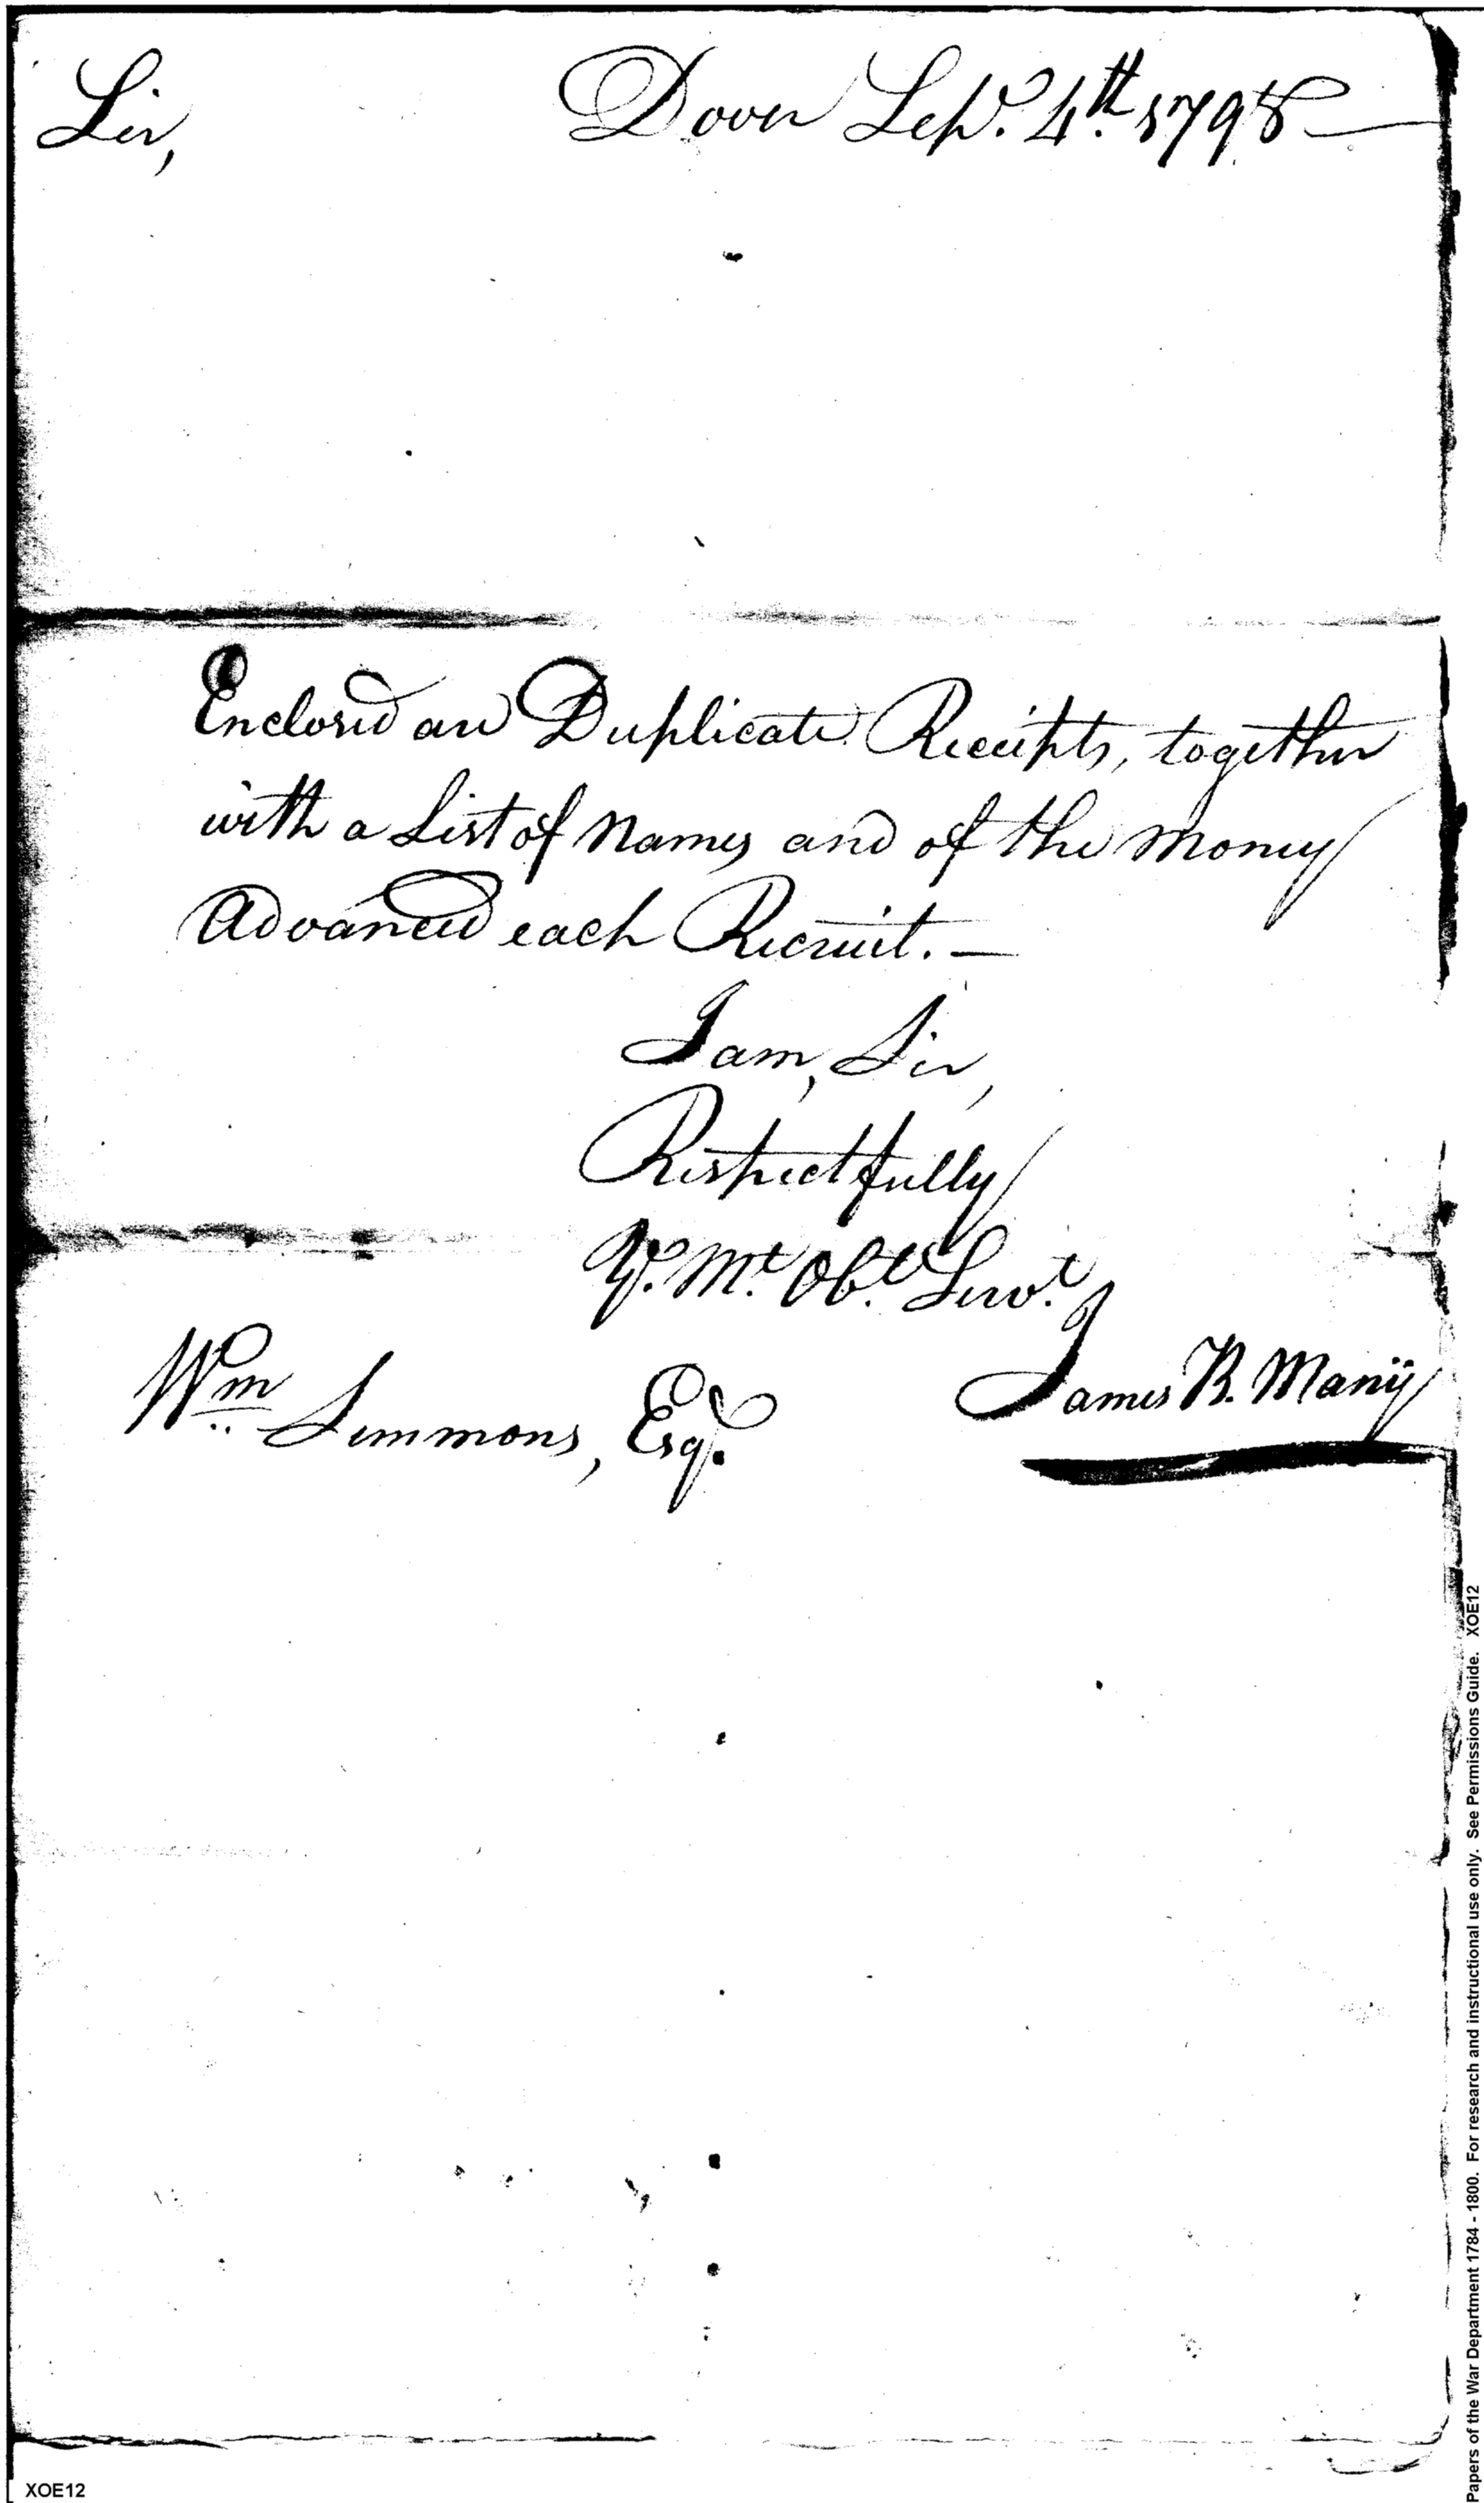 Sir, Dover Sep.r 4.th 1798
Enclosed are Duplicate Receipts, together
with a List of Names and of the Money
Advanced each Recruit. —
I am, Sir,
Respectfully
Y.r M.t Ob.t Serv.t
James B. Many
Wm Simmons, Esq.r
Papers of the War Department 1784 - 1800. For research and instructional use only. See Permissions Guide. XOE12
XOE12